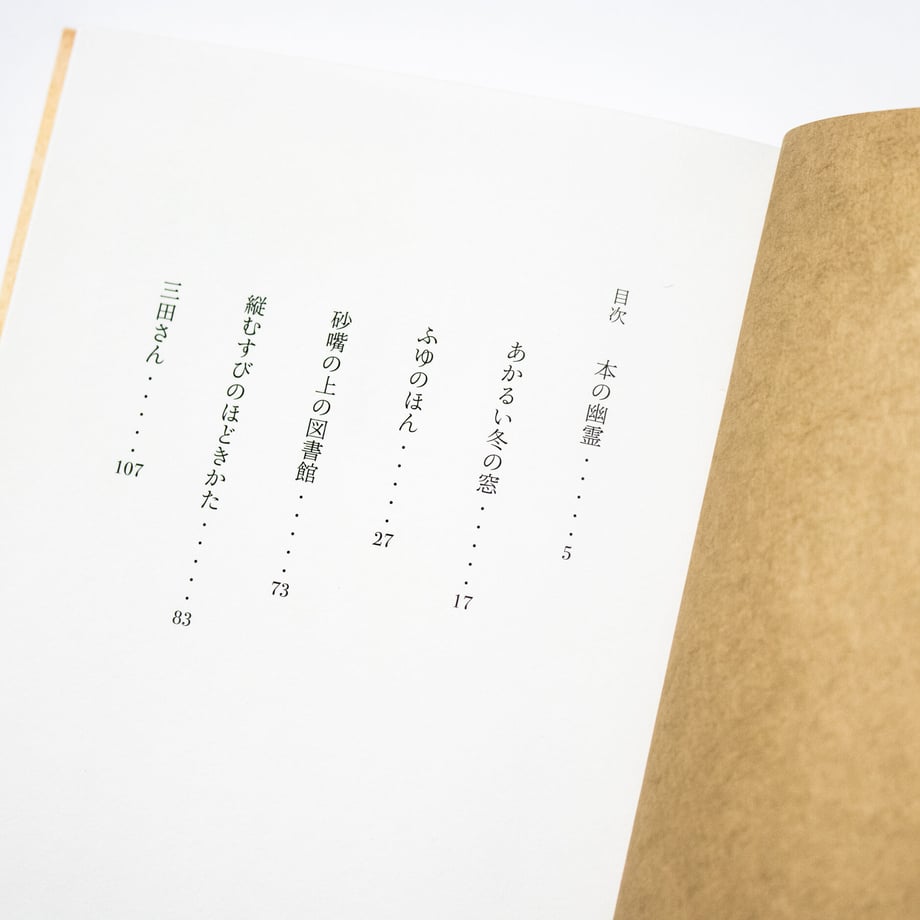 目次
本の幽霊・・・・・5
あかるい冬の窓・・・・・17
ふゆのほん・・・・・27
砂嘴の上の図書館・・・・・73
縦むすびのほどきかた・・・・・83
三田さん・・・・・107